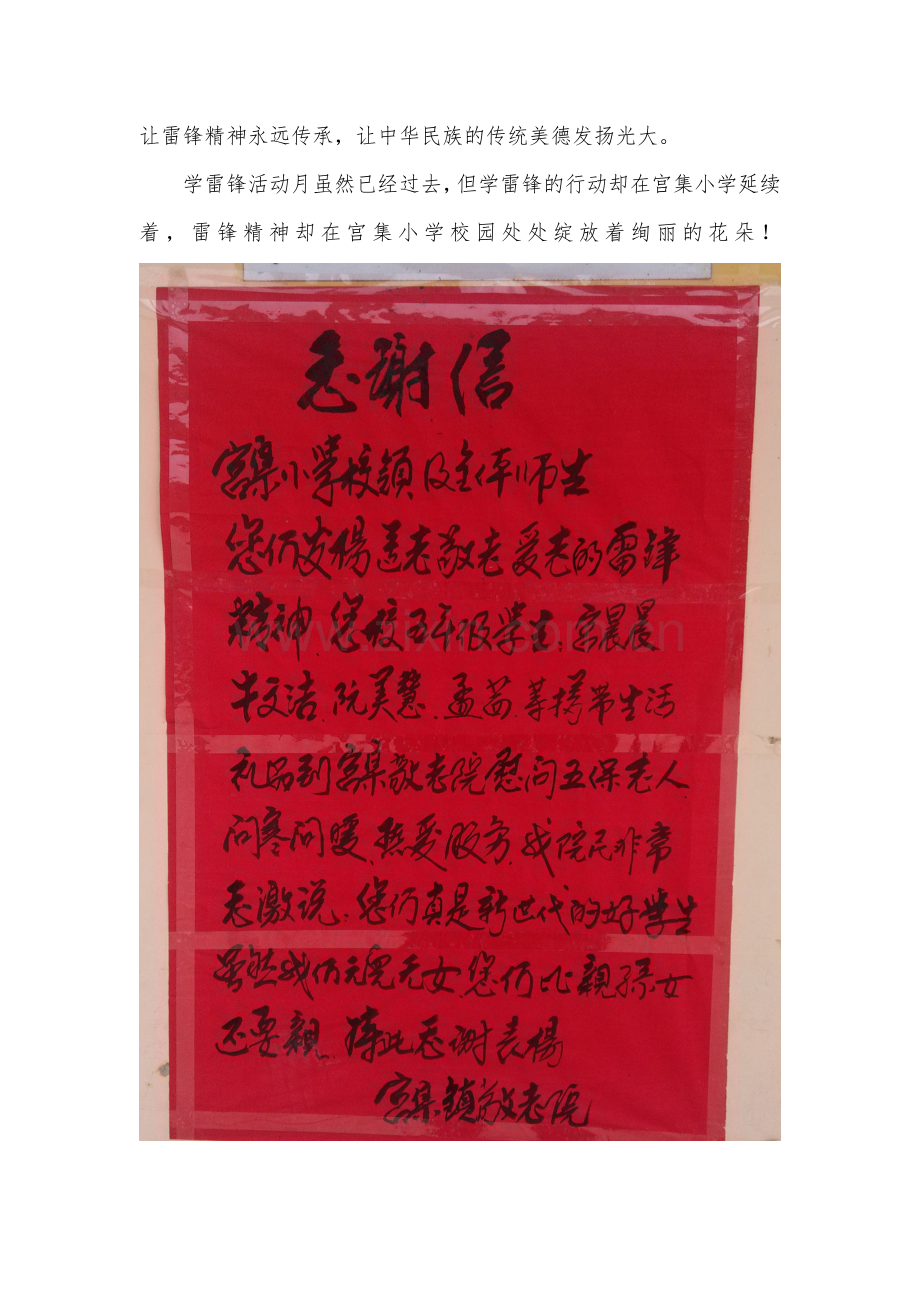 让雷锋精神永远传承，让中华民族的传统美德发扬光大。
学雷锋活动月虽然已经过去，但学雷锋的行动却在宫集小学延续
着，雷锋精神却在宫集小学校园处处绽放着绚丽的花朵！
感谢信
宫集小学校領及全体师生
您们发楊送老敬老爱老的雷锋
精神.您校五年级学生.宫晨晨
牛文洁.阮美慧.孟茹.等携带生活
礼品到宫集敬老院慰问五保老人
问寒问暖.热爱服务.我院民非常
感激说:您们真是新世代的好学生
虽然我们无儿无女.您们比親孫女
还要親 特此感谢表楊
宫集镇敬老院